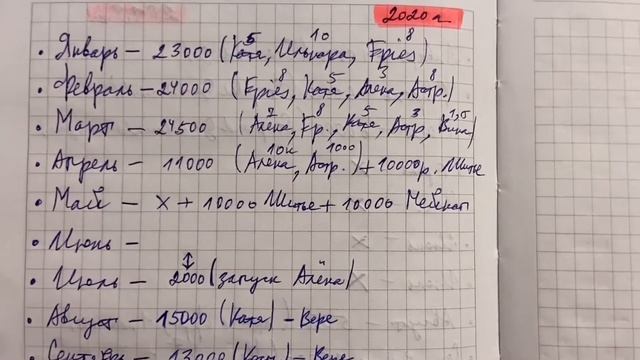 2020г
5 10 8
• Январь – 23000 (Катя, Ильнара, Epies)
8 5 3 8
• Февраль – 24000 (Epies, Катя, Алёна, Астр.)
7 8 5 3 1,5
• Март – 24500 (Алёна, Ep., Катя, Астр, Вика)
10к 1000
• Апрель – 11000 (Алёна, Астр.) + 10000р. Шитье
• Май – х + 10000 Шитье + 10000
• Июнь –
• Июль – 2000 (запуск Алёна)
• Август – 15000 (Катя) – Вере
• Сентябрь – 13000 (Катя) – Вере